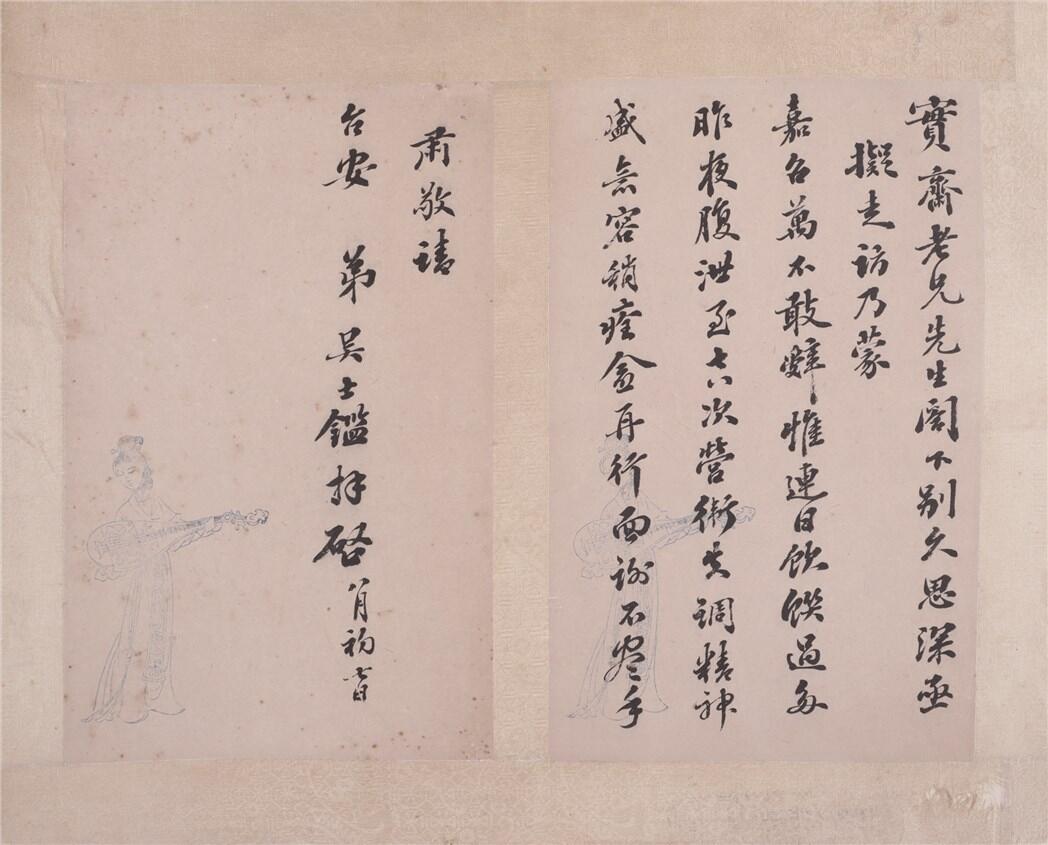 實齋老兄先生閣下別久思深亟
擬走訪乃蒙
嘉召萬不敢辭惟連日飲饌過多
昨夜腹泄至七八次營衛失調精神
憊容稍痊愈再行面謝不盡手
肅敬請
台安 弟吳士鑑拜啓 八月初七日